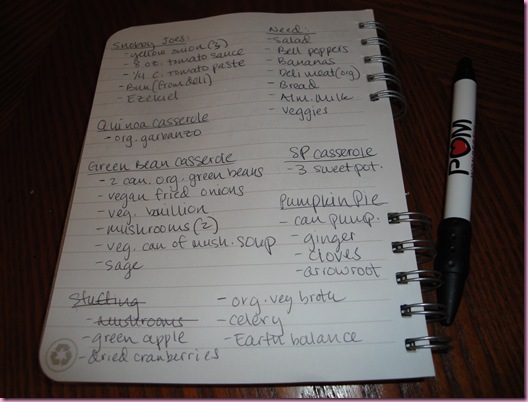 Snobby Joes:
- yellow onion (3)
- 8 oz. tomato sauce
- 1/4 c. tomato paste
- Bun (from deli)
- Ezekiel
Quinoa casserole
- org. garbanzo
Green Bean casserole
- 2 can. org. green beans
- vegan fried onions
- veg. bouillion
- mushrooms (2)
- veg. can of mush. soup
- sage
Stuffing
- mushrooms
- green apple
- dried cranberries
- org. veg broth
- celery
- Earth balance
Need:
- Salad
- Bell peppers
- Bananas
- Deli meat (org)
- Bread
- Alm. milk
- veggies
SP casserole
- 3 sweet pot.
Pumpkin Pie
- can pump.
- ginger
- cloves
- arrowroot